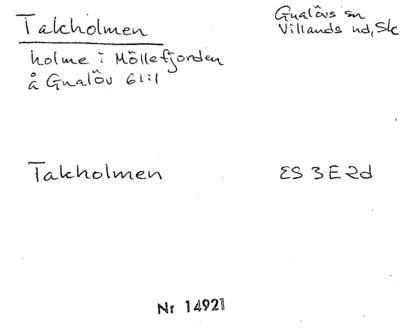 Takholmen
Gualövs sn
Villands hd, Sk
holme i Möllefjorden
å Gualöv 61:1
Takholmen
ES 3 E 2d
Nr 14921